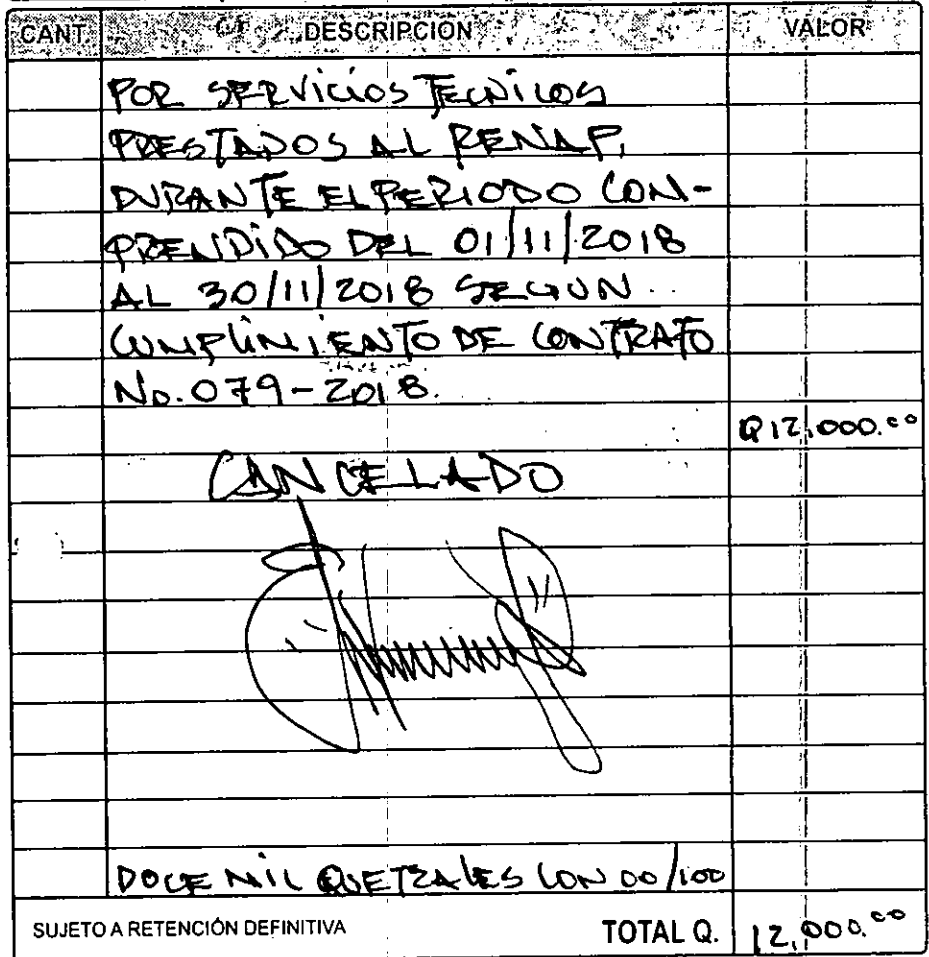 CANT. DESCRIPCION VALOR
POR SERVICIOS TECNICOS
PRESTADOS AL RENAP,
DURANTE EL PERIODO COM-
PRENDIDO DEL 01/11/2018
AL 30/11/2018 SEGUN
CUMPLIMIENTO DE CONTRATO
No. 079-2018.
Q12,000.00
CANCELADO
DOCE MIL QUETZALES CON 00/100
SUJETO A RETENCIÓN DEFINITIVA TOTAL Q. 12,000.00